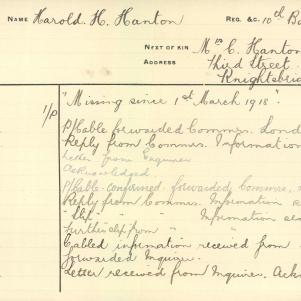 NAME Harold. H. Hanton REG. &C. 10th Ba
NEXT OF KIN Mrs C. Hanton
ADDRESS Third Street
Knightsbrid
1/P "Missing since 1st March 1918".
P/Cable forwarded Commrs. Lond
Reply from Commrs. Information
Letter from Enquirer
Acknowledged.
P/Cable confirmed forwarded Commrs,
Reply from Commrs. Information
" " " Information
Further from "
Cabled information received from
forwarded Inquirer.
Letter received from Inquirer. Ack